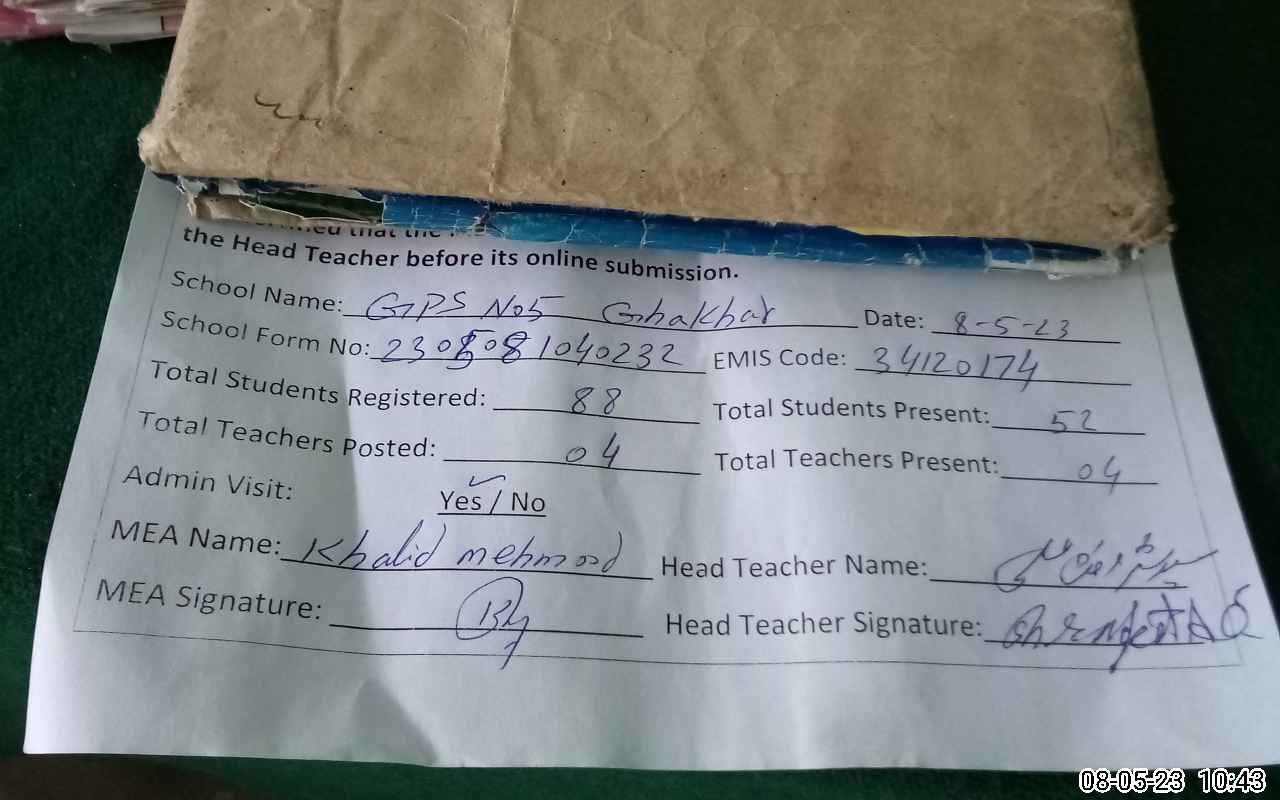 the Head Teacher before its online submission.
School Name: GPS No5 Ghakhar Date: 8-5-23
School Form No: 2305081040232 EMIS Code: 34120174
Total Students Registered: 88 Total Students Present: 52
Total Teachers Posted: 04 Total Teachers Present: 04
Admin Visit: Yes / No
MEA Name: Khalid mehmood Head Teacher Name:
MEA Signature: Head Teacher Signature:
08-05-23 10:43